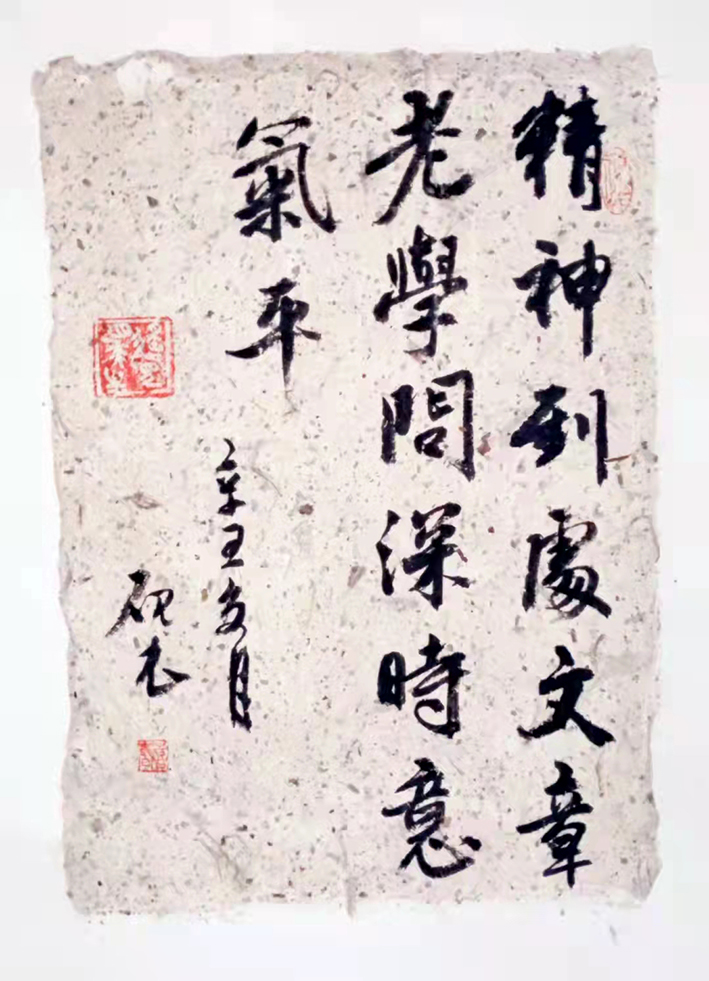 精神到處文章
老學問深時意
氣平
辛丑冬月
砚农